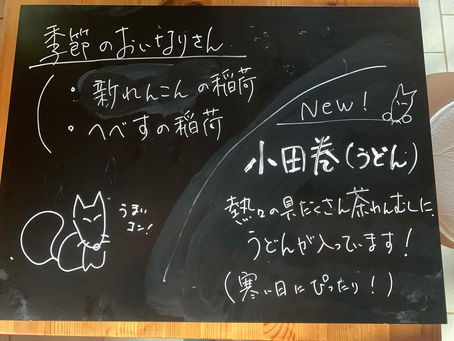 季節のおいなりさん
・新れんこんの稲荷
・へべすの稲荷
うまい
コン!
New!
小田巻(うどん)
熱々の具だくさん茶わんむしに、
うどんが入っています!
(寒い日にぴったり!)